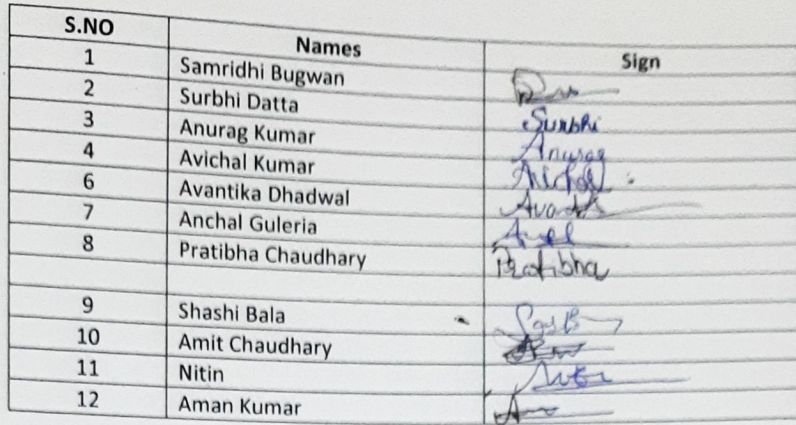 S.NO Names Sign
1 Samridhi Bugwan
2 Surbhi Datta Surbhi
3 Anurag Kumar Anurag
4 Avichal Kumar Avichal
6 Avantika Dhadwal
7 Anchal Guleria
8 Pratibha Chaudhary Pratibha
9 Shashi Bala
10 Amit Chaudhary
11 Nitin
12 Aman Kumar